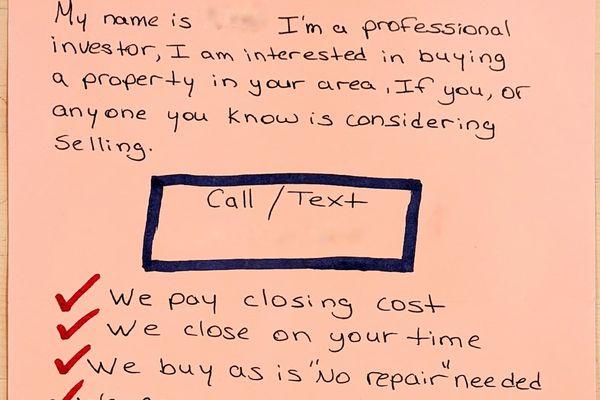 My name is I'm a professional
investor, I am interested in buying
a property in your area, If you, or
anyone you know is considering
Selling.
Call / Text
We pay closing cost
We close on your time
We buy as is "No repair" needed